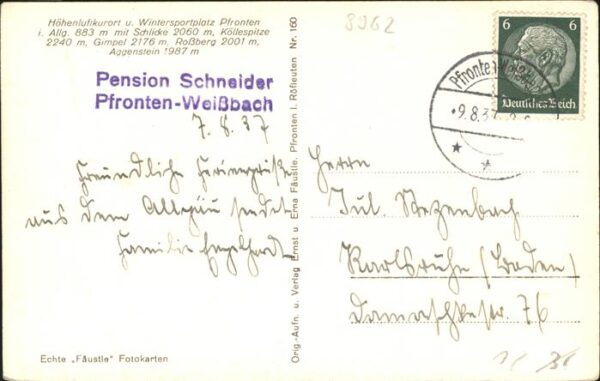 Höhenluftkurort u. Wintersportplatz Pfronten
i. Allg. 883 m mit Schlicke 2060 m, Köllespitze
2240 m, Gimpel 2176 m, Roßberg 2001 m,
Aggenstein 1987 m
Pension Schneider
Pfronten-Weißbach
7.8.37
Freundliche Feriengrüße
aus dem Allgäu sendet
Familie Engelhardt
Echte „Fäustle" Fotokarten
Orig.-Aufn. u. Verlag Ernst u. Erna Fäustle, Pfronten i. Rößleuten Nr. 160
8962
6 6
Deutsches Reich
Pfronten
-9.8.37
Herrn
Jul.
Karlsruhe (Baden)
76